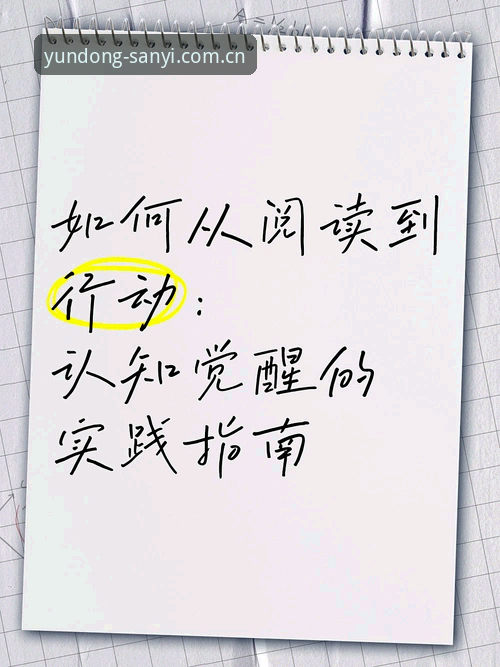 yundong-sanyi.com.cn
如何从阅读到
行动：
认知觉醒的
实践指南